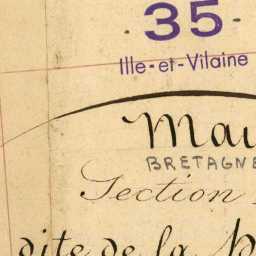 35
Ille-et-Vilaine
Mau
BRETAGNE
Section
dite de la P